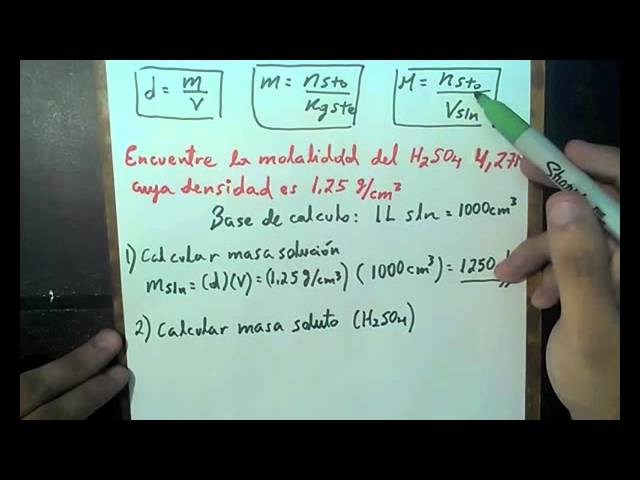 d = m/v
m = nsto/Kgste
M = nsto/Vsln
Encuentre la molalidad del H₂SO₄ 4,27M
cuya densidad es 1,25 g/cm³
Base de calculo: 1L sln = 1000cm³
1) Calcular masa solución
msln = (d)(v) = (1,25 g/cm³) (1000cm³) = 1250
2) Calcular masa soluto (H₂SO₄)
Sharpie